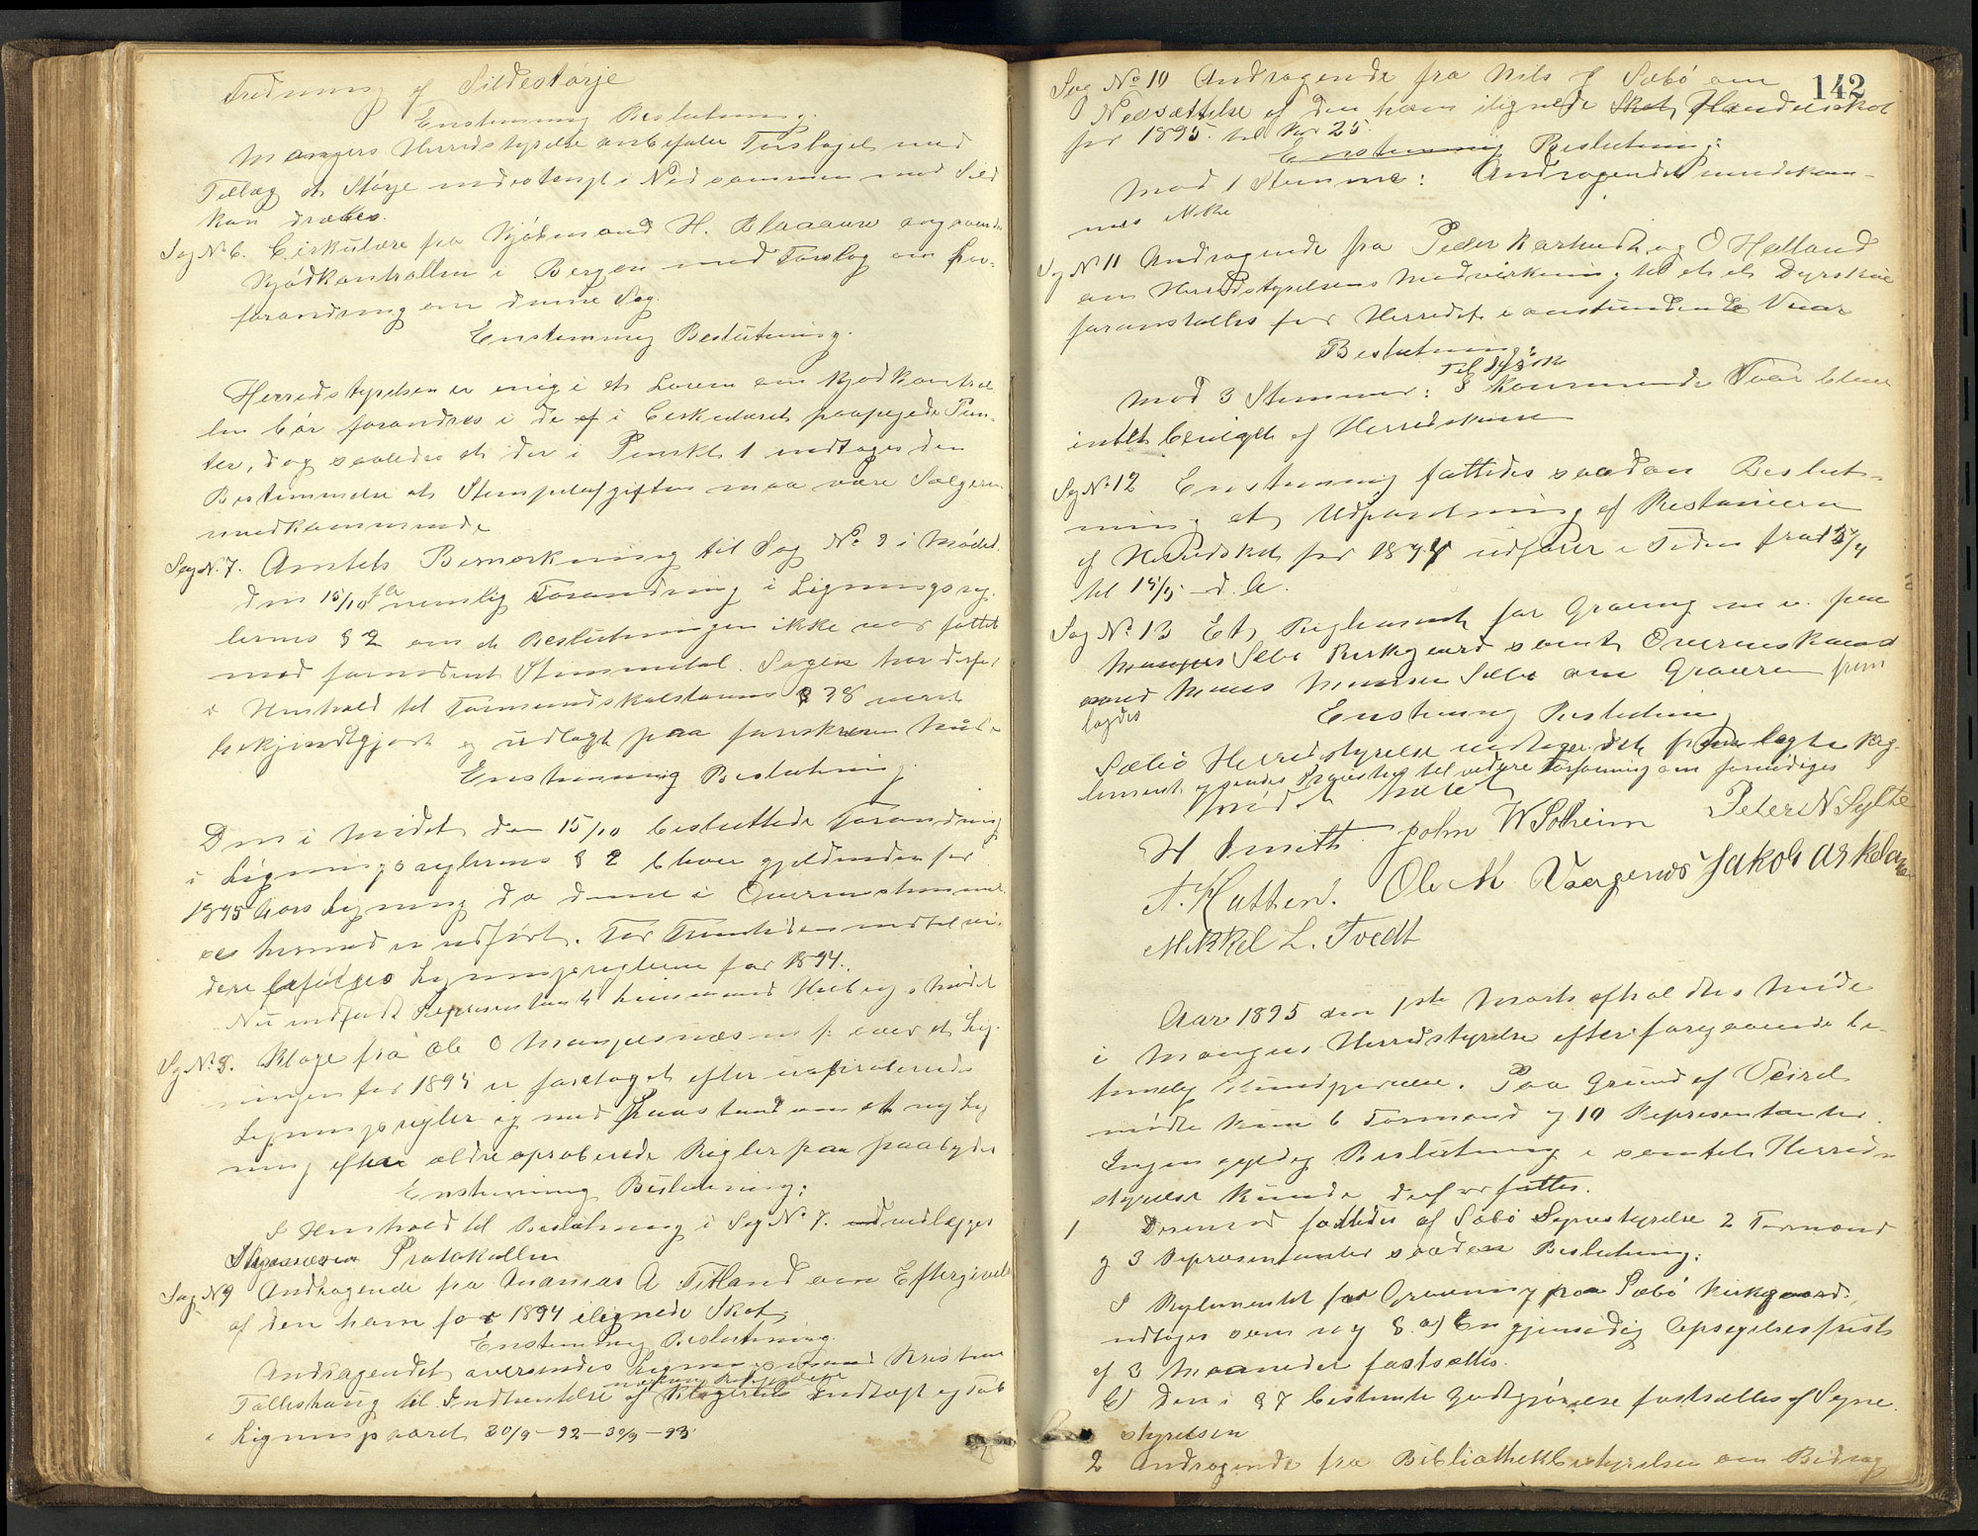 Fredning af Sildestørje
Enstemmig Beslutning:
Mangers Herredstyrelse anbefaler Forslaget med
Tillæg at Størje indestængt i Nod sammen med Sild
kan dræbes.
Sag N. 6. Cirkulære fra Kjøbmand H. Blaauw angaaende
Kjødkontrollen i Bergen med Forslag om For-
forandring om denne Sag.
Enstemmig Beslutning.
Herredstyrelsen er enig i at Loven om Kjødkontrol
len bør forandres i de af i Cirkulæret paapegede Punk-
ter, dog saaledes at der i Punkt 1 indtages den
Bestemmelse at Stempelafgiften maa være Sælgeren
uvedkommende
Sag N. 7. Amtets Bemærkning til Sag No 9 i Mødet
den 15/10 f.A. nemlig Forandring i Ligningsreg-
lernes § 2 om at Beslutningen ikke var fattet
med fornødent Stemmetal. Sagen har derfor
i Henhold til Formandskabslovens § 38 været
bekjendtgjort og udlagt paa foreskreven
Enstemmig Beslutning.
Den i Mødet den 15/10 besluttede Forandring
i Ligningsreglernes § 2 bliver gjeldende for
1895 Aars Ligning da denne i Overensstemmel-
se hermed er udført. For Fremtiden indtil vi-
dere befølges Ligningsreglerne for 1894.
Nu indfandt Repræsentant sig i Mødet
Sag N. 8. Klage fra Ole O Mangersnæs over at Lig-
ningen for 1895 er foretaget efter uaproberede
Ligningsregler og med Paastand om at ny Lig
ning efter ældre aproberede Regler paa paabydes
Enstemmig Beslutning:
I Henhold til Beslutning i Sag No 7. vedlægges
Skrivelsen Protokollen
Sag N 9 Andragende fra Ananias A Titland om Eftergivelse
af den ham for 1894 ilignede Skat
Enstemmig Beslutning.
Andragendet oversendes Kristen
Tolleshaug til Indhentelse af Klagerens Indtægt og Tab
i Ligningsaaret 30/9 - 92 - 30/9 - 93
142
Sag No 10 Andragende fra Nils J Sæbø om
Nedsættelse af den ham ilignede Skat Handelsskat
for 1895 til Kr 25.
Enstemmig Beslutning:
Mod 1 Stemme: Andragendet imødekom-
mes ikke
Sag N 11 Andragende fra Peder og O Helland
om Herredstyrelsens Medvirkning til at et Dyrskue
foranstaltes for Herredet i anstundende Vaar
Beslutning:
Til Dyrsk
Mod 3 Stemmer: I kommende Vaar blev
intet bevilget af Herredskassen
Sag N. 12 Enstemmig fattedes saadan Beslut-
ning at Udpantning af Restancerne
af Herredskat for 1894 udføres i Tiden fra
til 15/5 d. A.
Sag No 13 Et Reglement for Graving m v. paa
Manger Sæbø Kirkegaard samt Overenskomst
med Mons Monsen Sæbø om Graven frem
lagdes
Enstemmig Beslutning
Sæbø Herredstyrelse vedtager det fremlagte Reg-
lement og sendes Provsten til videre Forføining om fornødiges
Mødet hævet
H Smith John W Solheim Peter N Sylte
A. Hatten. Ole M Vaagenes Jakob Askeland
Mikkel L. Tvedt
Aar 1895 den 1ste Marts afholdtes Møde
i Manger Herredstyrelse efter foregaaende be-
timelig Kundgjørelse. Paa Grund af Veiret
mødte kun 6 Formænd og 10 Repræsentanter.
Ingen gyldig Beslutning i samtlet Herreds-
styrelse kunde derfor fattes.
1 Derimod fattedes af Sæbø Sognestyrelse 2 Formænd
og 3 Repræsentanter saadan Beslutning:
I Reglementet for Gravning paa Sæbø Kirkegaard,
indtages som ny § a) En gjensidig Opsigelsesfrist
af 3 Maaneder fastsættes.
b) Den i § 7 bestemte Godtgjørelse fastsættes af Sogne
styrelsen
2 Andragende fra Bibliothekbestyrelsen om Bidrag